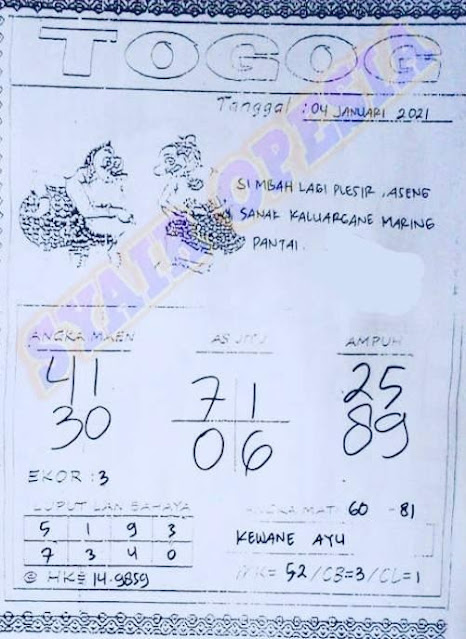 TOGOG
Tanggal : 04 JANUARI 2021
SI MBAH LAGI PLESIR , ASENG
SANAK KALUARGANE MARING
PANTAI .
SYAIR OPESIA
ANGKA MAEN
AS JITU
AMPUH
41
30
7 1
0 6
25
89
EKOR : 3
LUPUT LAN BAHAYA
5 1 9 3
7 3 4 0
@ HK = 14-9859
ANGKA MATI 60 - 81
KEWANE AYU
= 52 / CB=3 / CL=1